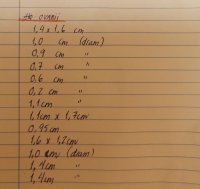 1,4 x 1,6 cm
1,0 cm (diam)
0,9 cm "
0,7 cm "
0,6 cm "
0,2 cm "
1,1 cm "
1,1 cm x 1,7 cm
0,95 cm
1,6 x 1,2 cm
1,0 cm (diam)
1,4 cm "
1,4 cm "